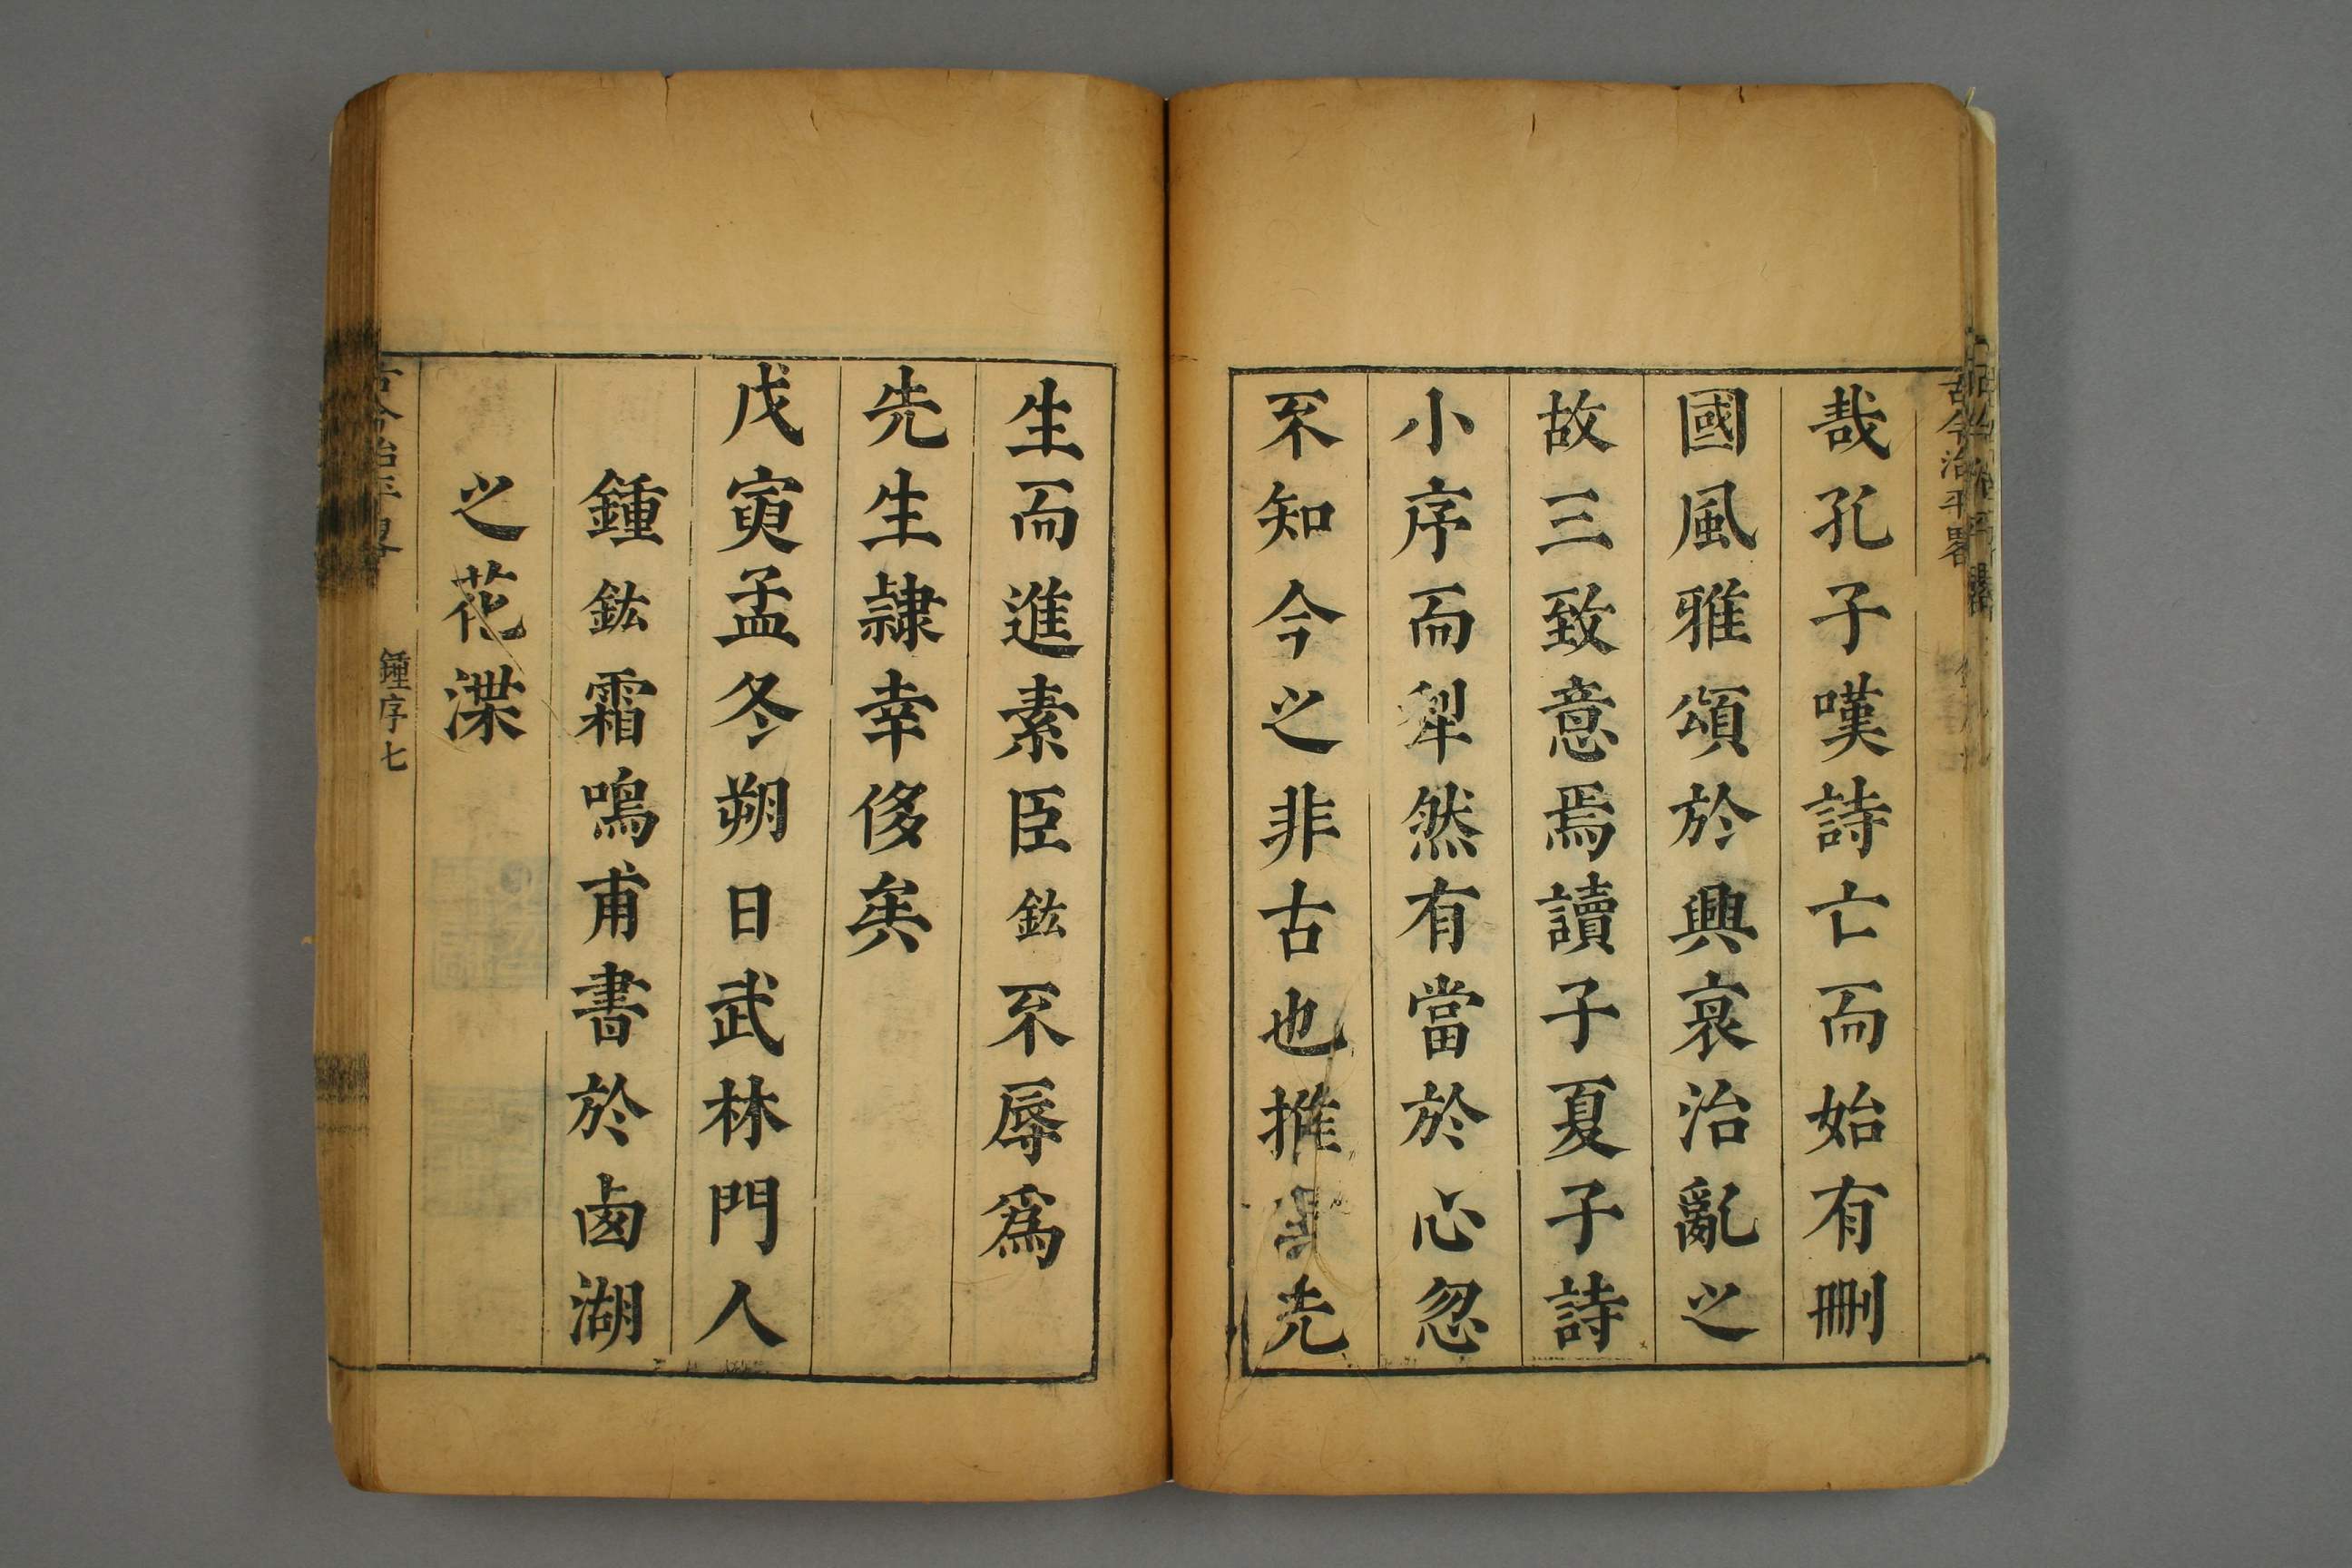 古今治平畧
哉孔子嘆詩亡而始有刪
國風雅頌於興哀治亂之
故三致意焉讀子夏子詩
小序而犁然有當於心忽
不知今之非古也推先
生而進素臣鈜不辱爲
先生隷幸侈矣
戊寅孟冬朔日武林門人
鍾鈜霜鳴甫書於鹵湖
之花渫
古今治平畧
鍾序七